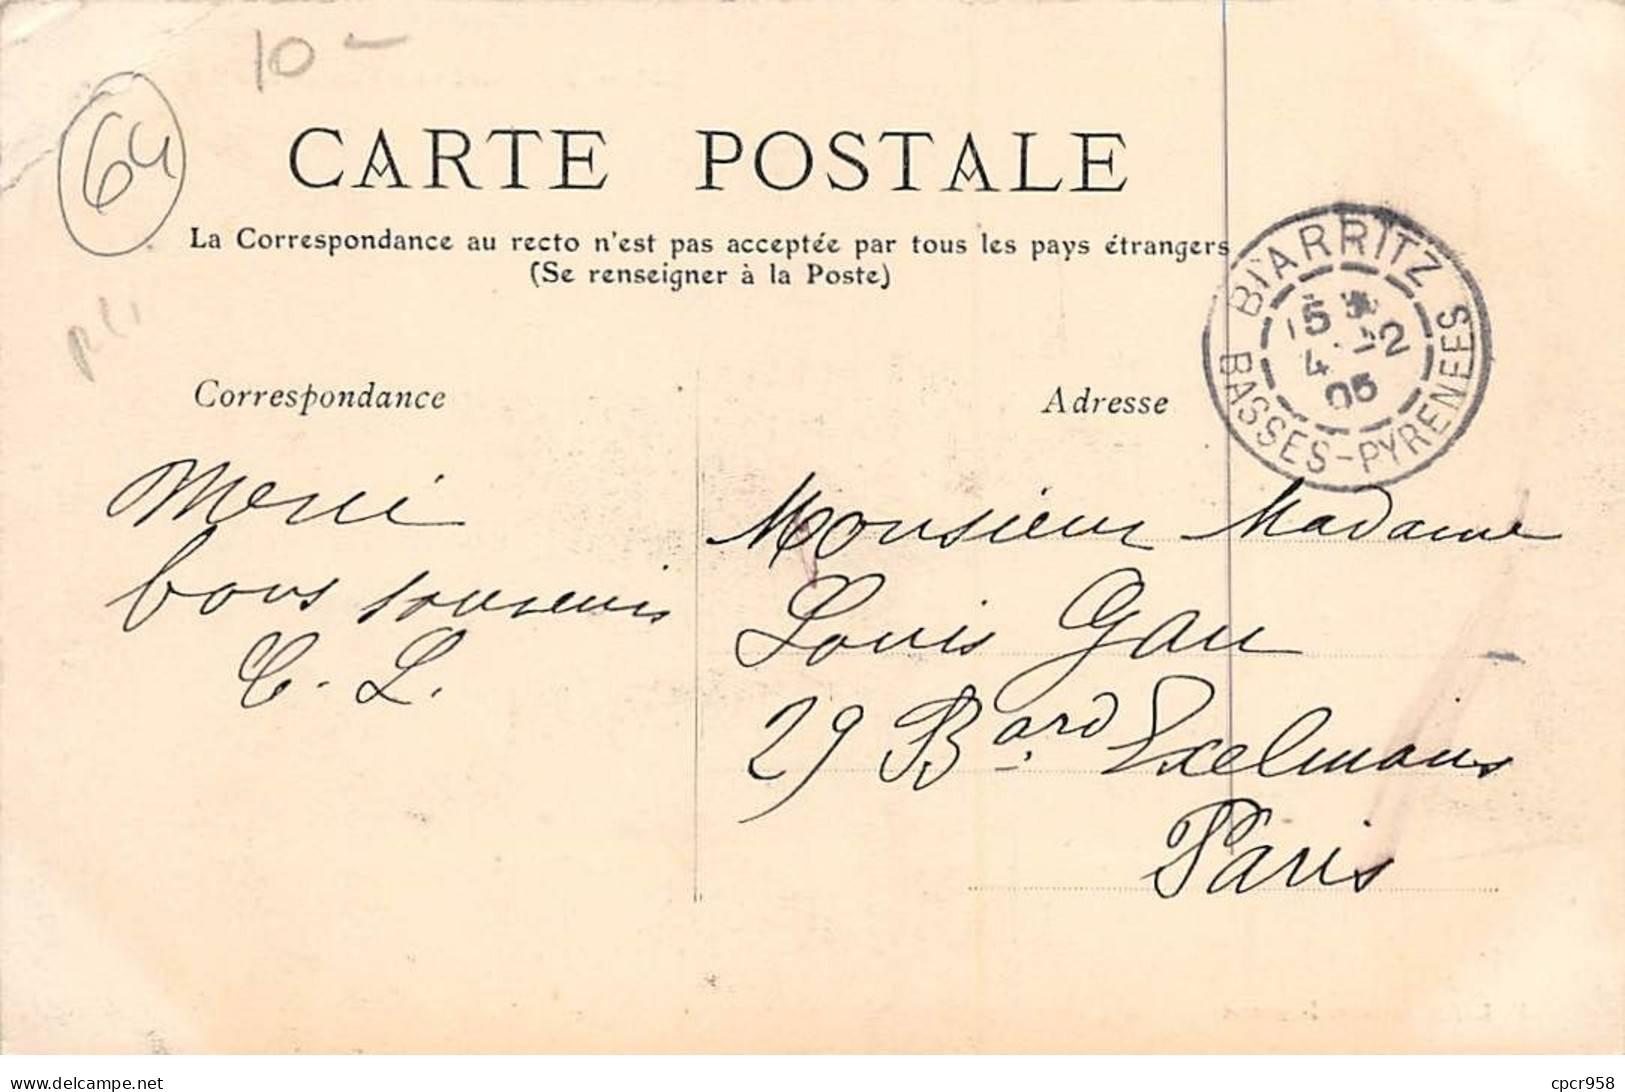 10 -
64
CARTE POSTALE
La Correspondance au recto n'est pas acceptée par tous les pays étrangers
(Se renseigner à la Poste)
BIARRITZ
15
4 -12
05
BASSES-PYRENEES
Correspondance
Adresse
Merci
bons souvenirs
C. L.
Monsieur Madame
Louis Gau
29 Bard Exelmans
Paris
www.delcampe.net
cpcr958